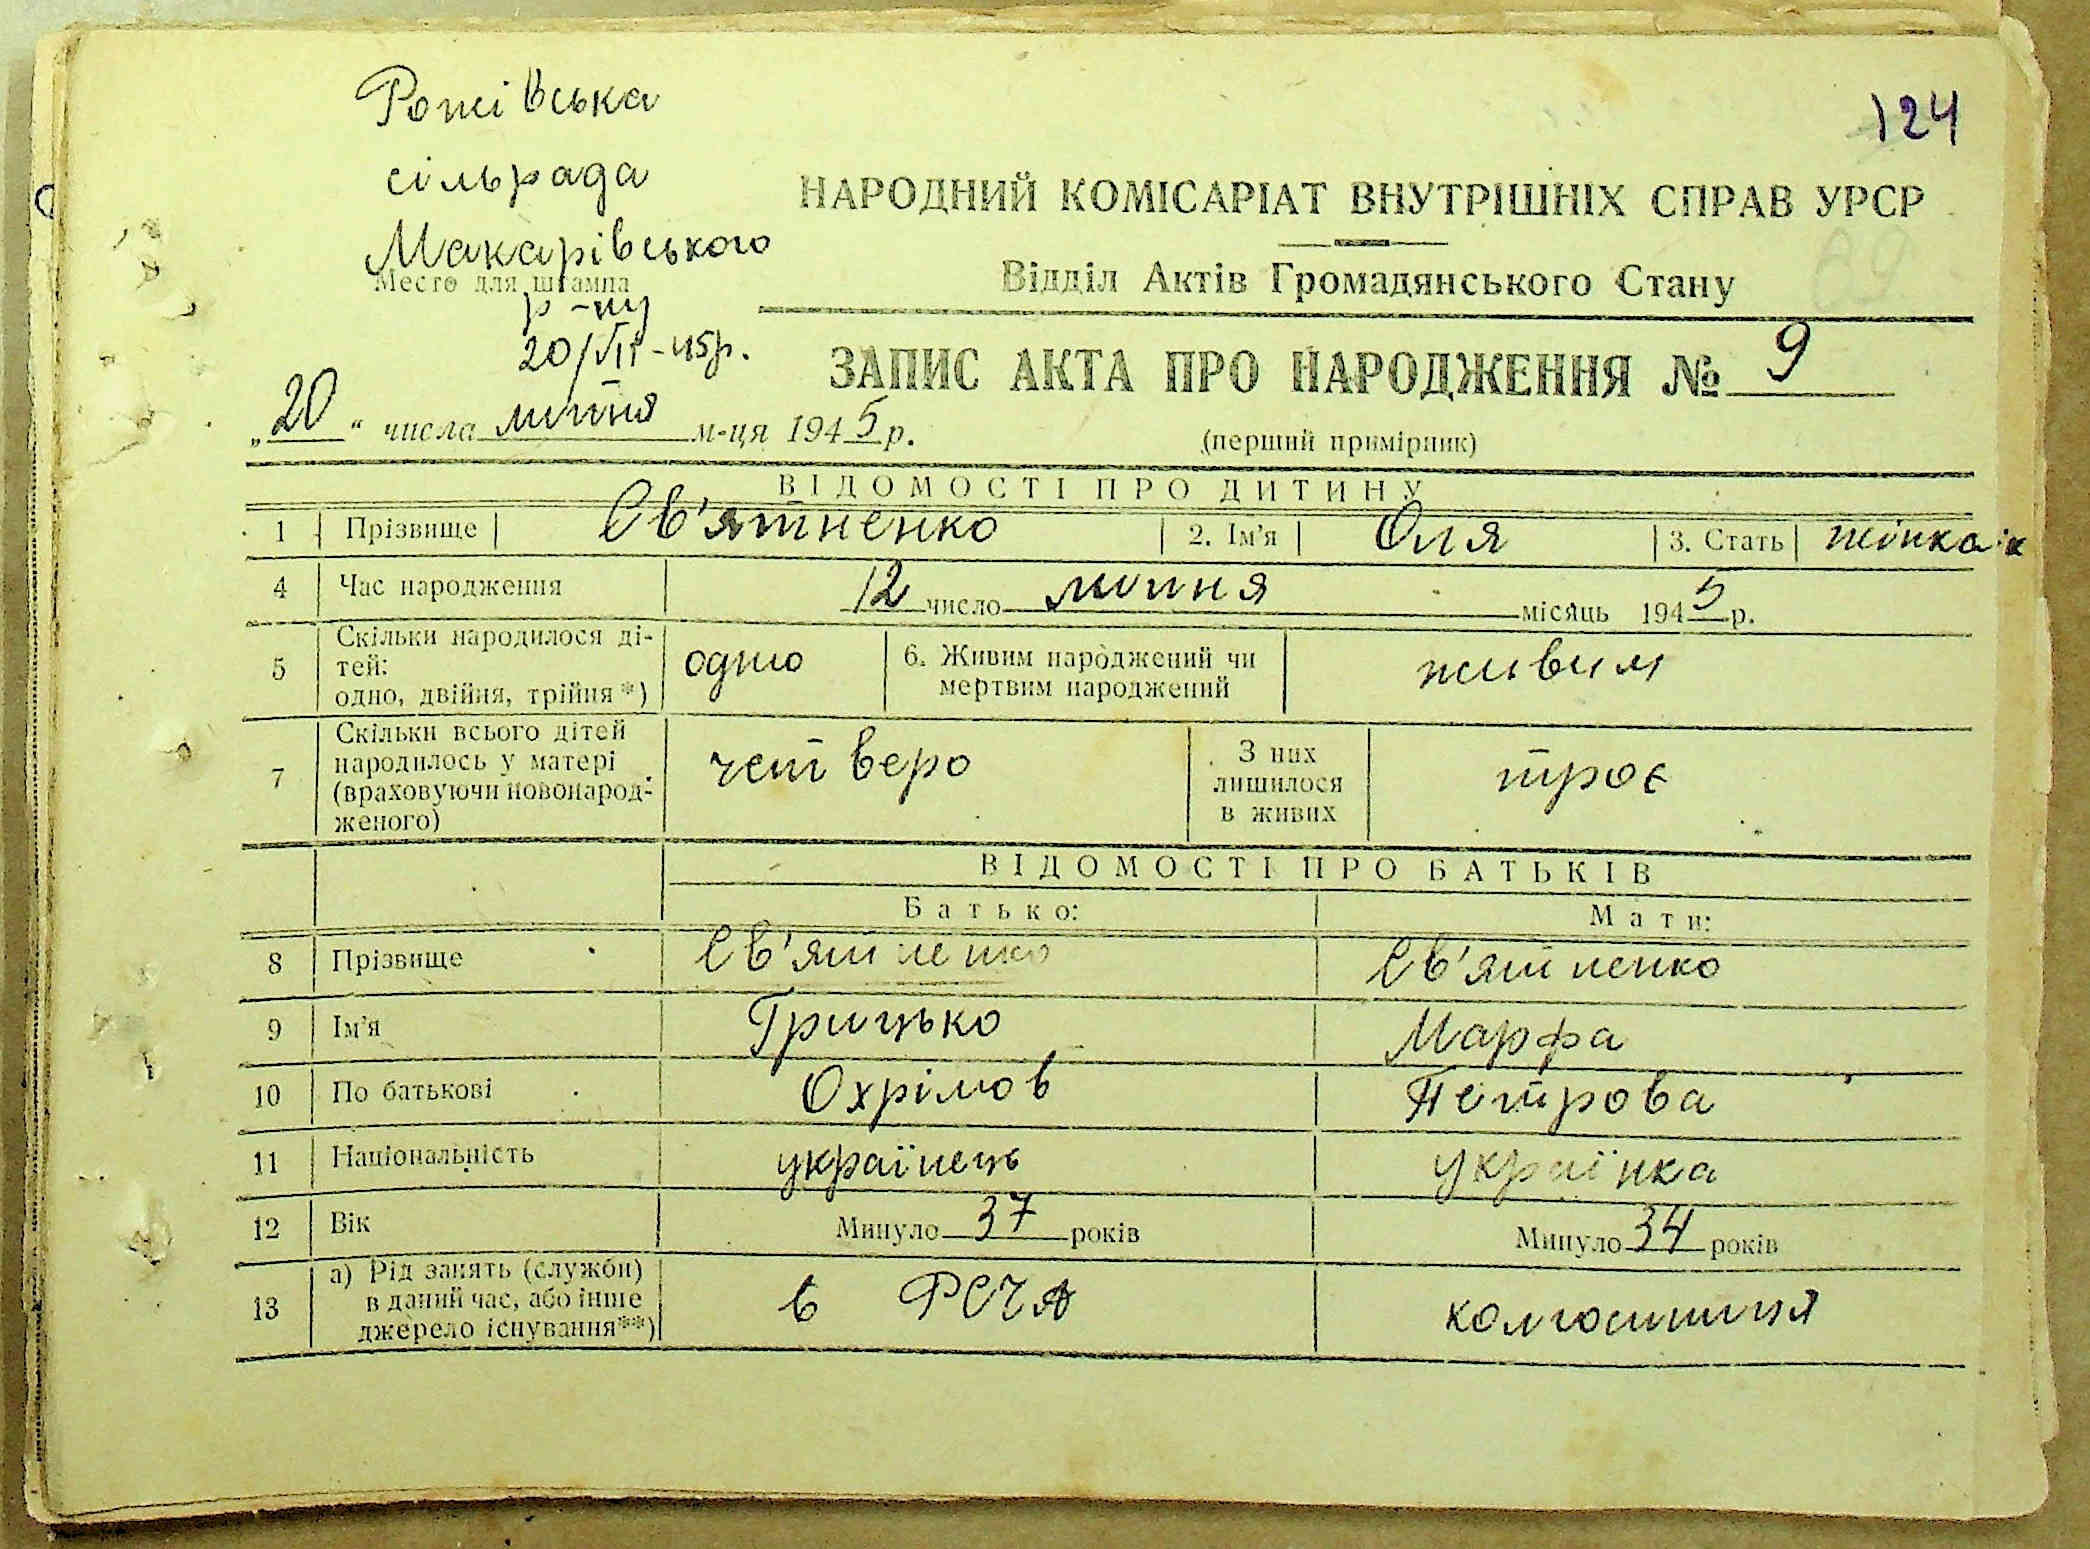 Рожівська
124
сільрада
НАРОДНИЙ КОМІСАРІАТ ВНУТРІШНІХ СПРАВ УРСР
Макарівського
Место для штампа
Відділ Актів Громадянського Стану
р-ну
20/VII-45р.
ЗАПИС АКТА ПРО НАРОДЖЕННЯ № 9
„20“ числа липня м-ця 1945 р.
(перший примірник)
ВІДОМОСТІ ПРО ДИТИНУ
1 Прізвище Св'ятненко 2. Ім'я Оля 3. Стать жінка
4 Час народження 12 число липня місяць 1945 р.
5 Скільки народилося ді-
тей:
одно, двійня, трійня*) одно 6. Живим народжений чи
мертвим народжений живим
7 Скільки всього дітей
народилось у матері
(враховуючи новонарод-
женого) четверо З них
лишилося
в живих троє
ВІДОМОСТІ ПРО БАТЬКІВ
Батько: Мати:
8 Прізвище Св'ятненко Св'ятненко
9 Ім'я Грицько Марфа
10 По батькові Охрімов Петрова
11 Національність українець українка
12 Вік Минуло 37 років Минуло 34 років
13 а) Рід занять (служби)
в даний час, або інше
джерело існування**) в РСЧА колгоспниця